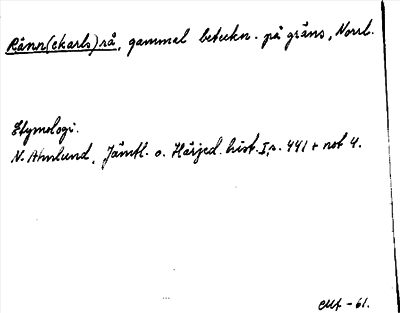 Ränn(ekarls)rå, gammal beteckn. på gräns, Norrl.
Etymologi.
N. Ahnlund, Jämtl. o. Härjed. hist. I, s. 441 + not 4.
-61.